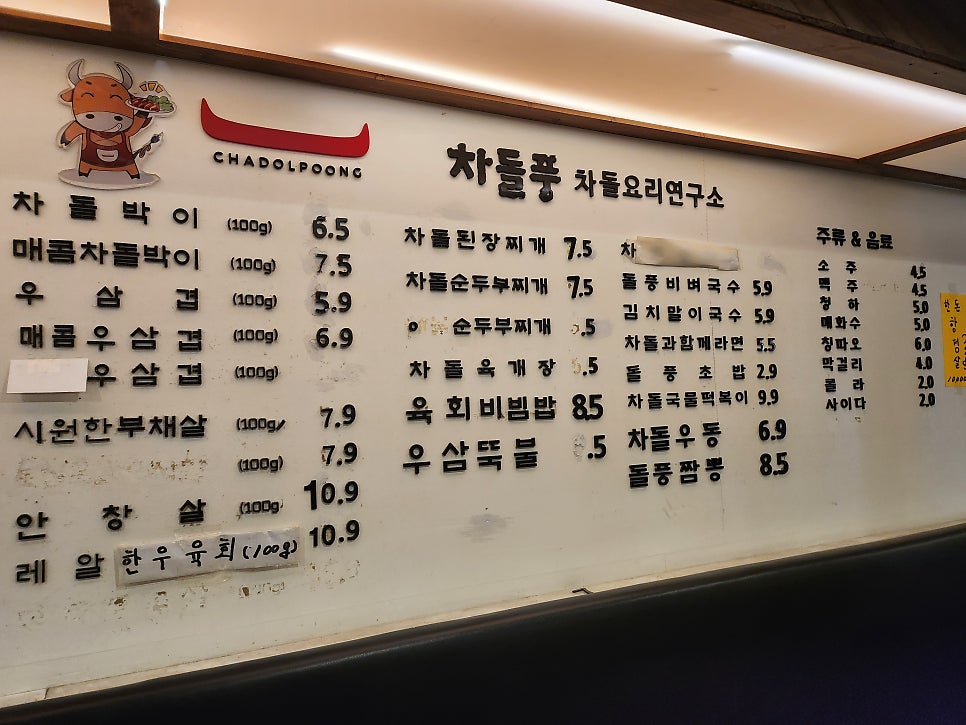 CHADOLPOONG
차돌풍 차돌요리연구소
차돌박이 (100g) 6.5
매콤차돌박이 (100g) 7.5
우삼겹 (100g) 5.9
매콤우삼겹 (100g) 6.9
우삼겹 (100g)
시원한부채살 (100g) 7.9
(100g) 7.9
안창살 (100g) 10.9
레알 한우육회(100g) 10.9
차돌된장찌개 7.5
차돌순두부찌개 7.5
순두부찌개 .5
차돌육개장 .5
육회비빔밥 8.5
우삼뚝불 .5
차
돌풍비벼국수 5.9
김치말이국수 5.9
차돌과함께라면 5.5
돌풍초밥 2.9
차돌국물떡볶이 9.9
차돌우동 6.9
돌풍짬뽕 8.5
주류 & 음료
소주 4.5
맥주 4.5
청하 5.0
매화수 5.0
칭따오 6.0
막걸리 4.0
콜라 2.0
사이다 2.0